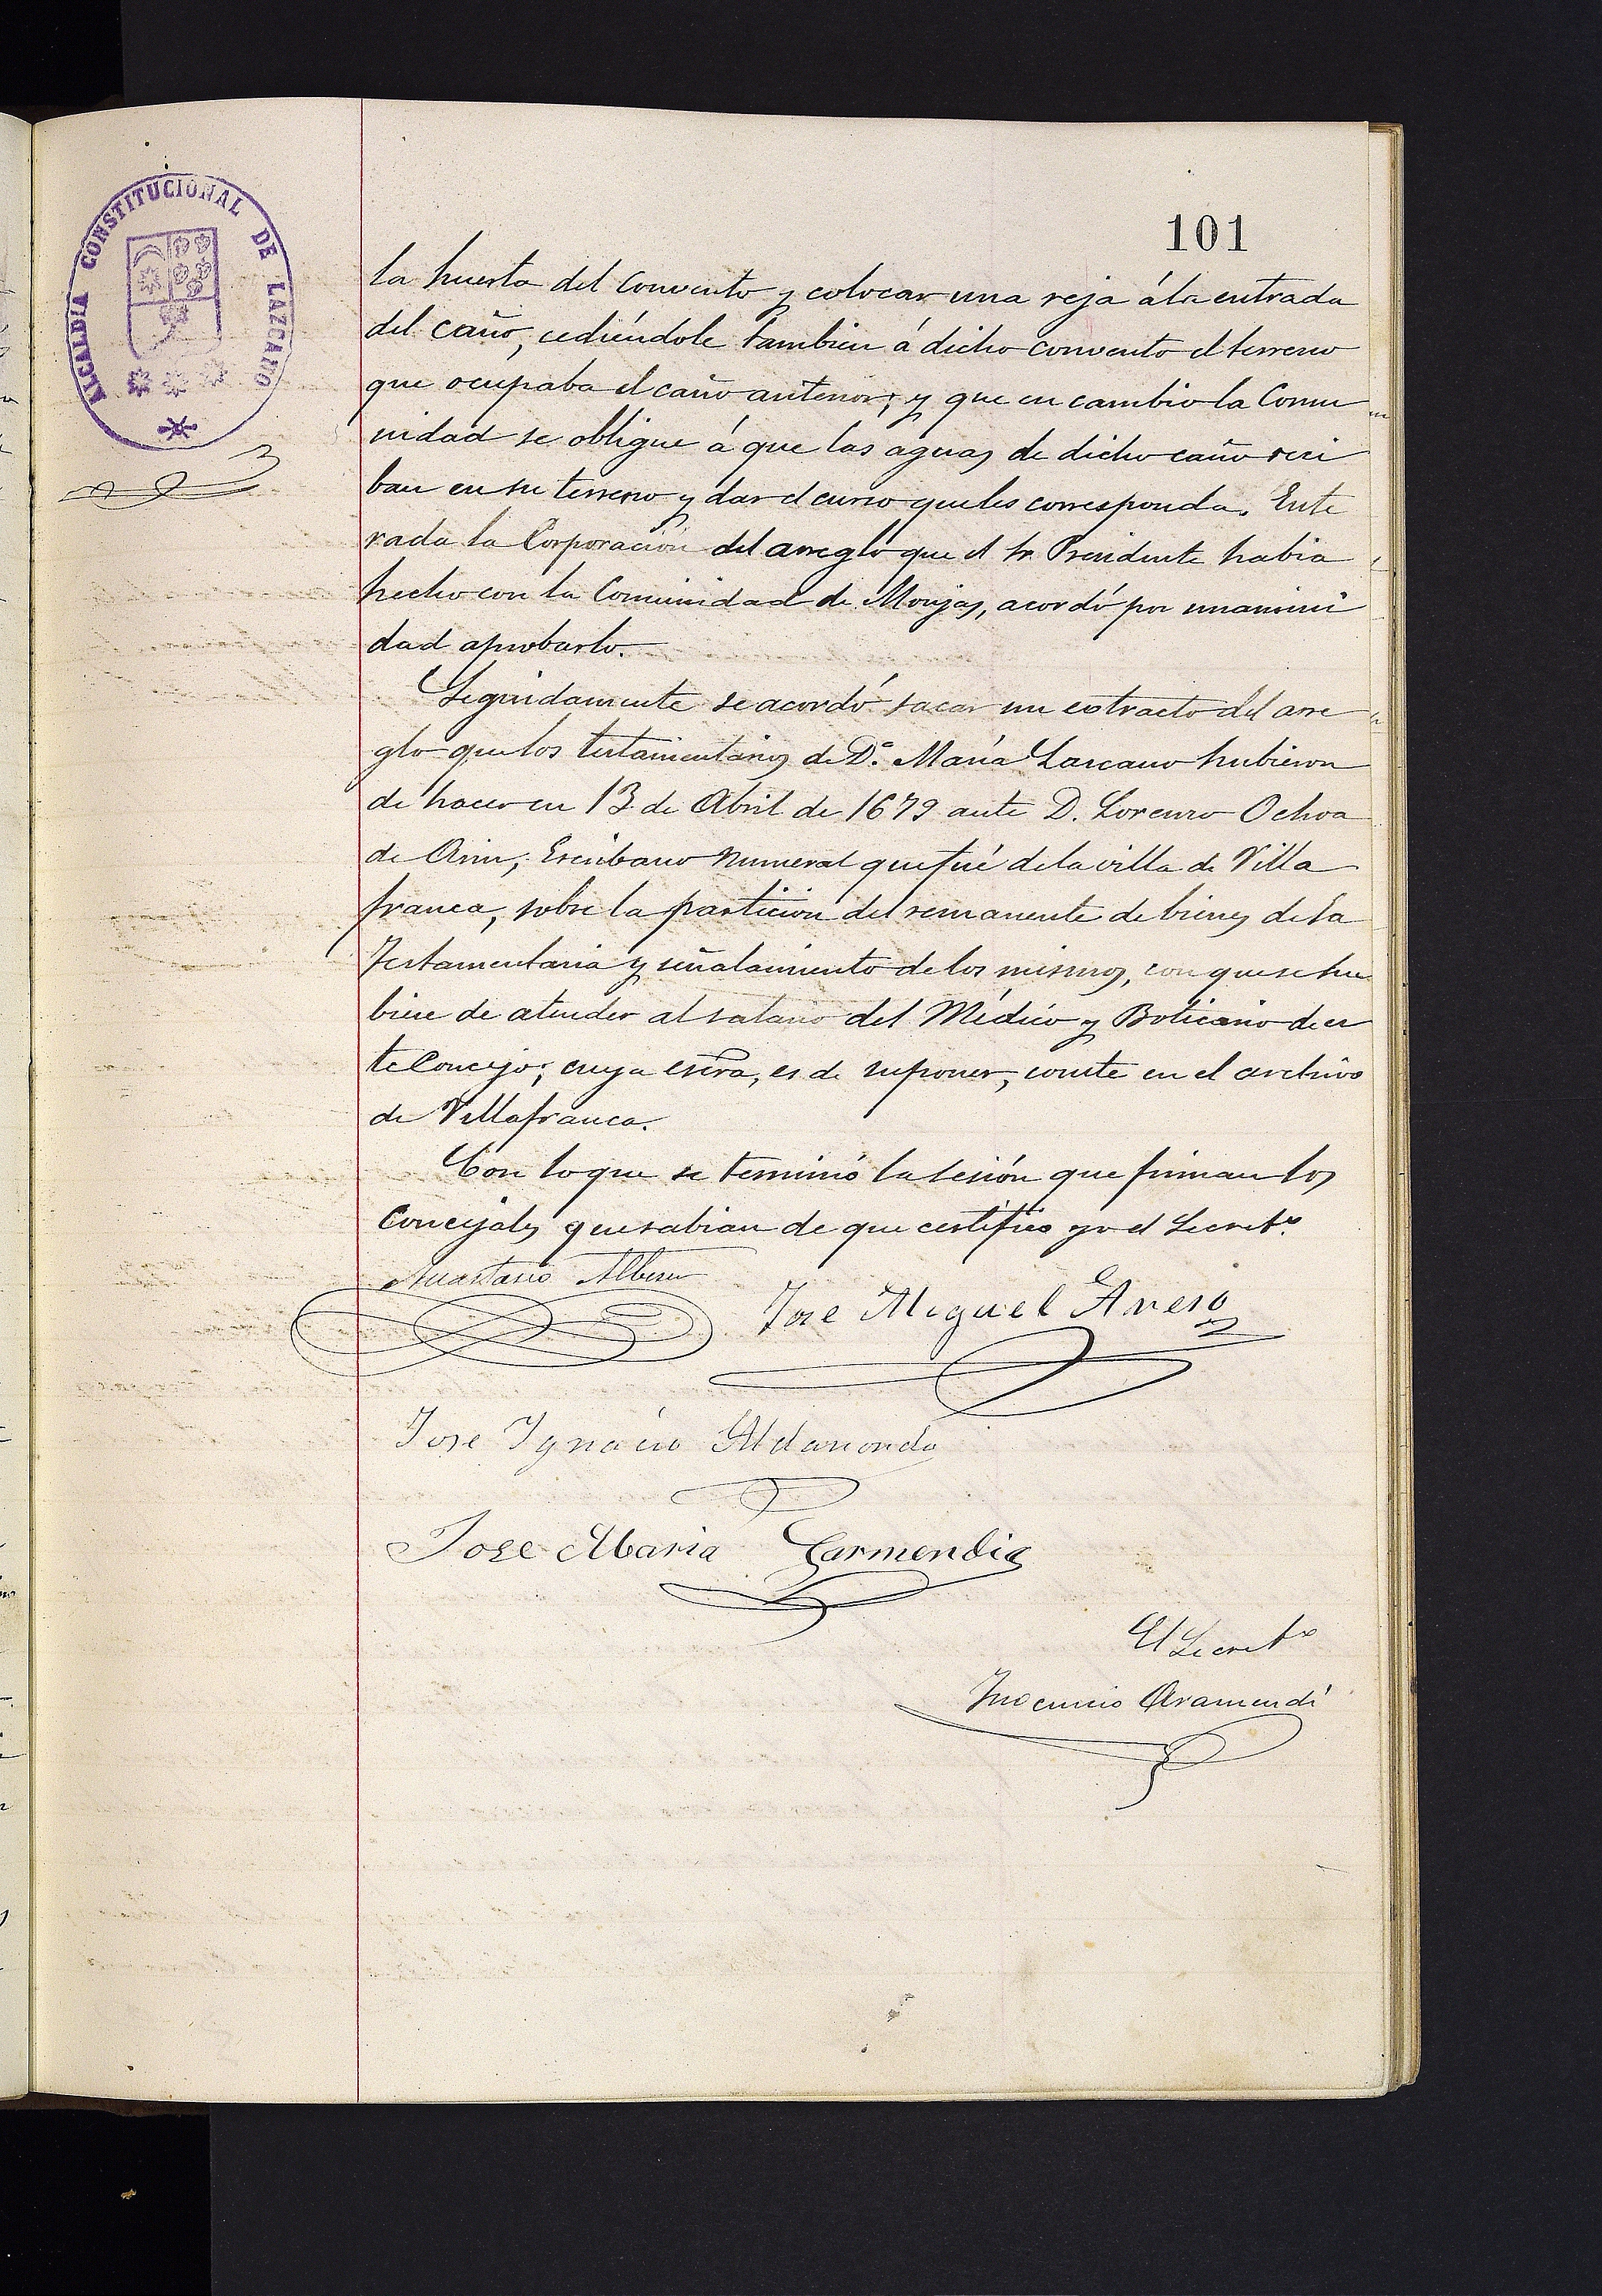 ALCALDIA CONSTITUCIONAL DE LAZCANO
101
la huerta del Convento y colocar una reja á la entrada
del caño, cediéndole tambien á dicho convento el terreno
que ocupaba el caño anterior; y que en cambio la Comu
nidad se obligue á que las aguas de dicho caño reci
ban en su terreno y dar el curso que les corresponda. Ente
rada la Corporación del arreglo que el Sr. Presidente habia
hecho con la Comunidad de Monjas, acordó por unanimi
dad aprobarlo.
Seguidamente se acordó sacar un extracto del arre
glo que los testamentarios de Dª. María Lazcano hubieron
de hacer en 13 de Abril de 1679 ante D. Lorenzo Ochoa
de Arin, Escribano numeral que fué de la villa de Villa
franca, sobre la particion del remanente de bienes de la
Testamentaria y señalamiento de los mismos, con que se hu
biese de atender al salario del Médico y Boticario de es
te Concejo; cuya escra, es de suponer, conste en el archivo
de Villafranca.
Con lo que se terminó la sesión que firman los
Concejales que sabian de que certifico yo el Secretº.
Anastasio Albisu
Jose Miguel
Jose Ygnacio Aldanondo
Jose Maria Garmendia
El Secretº
Ynocencio Aramendi